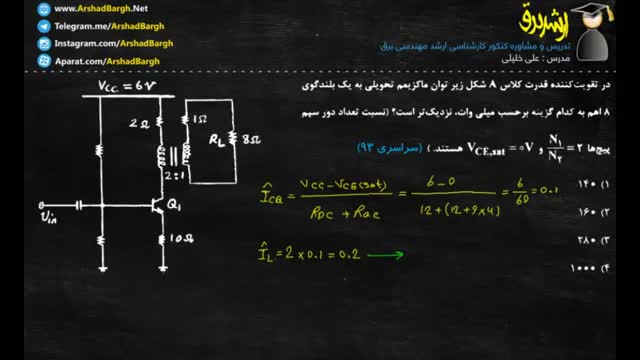 www.ArshadBargh.Net
Telegram.me/ArshadBargh
Instagram.com/ArshadBargh
Aparat.com/ArshadBargh
ارشد برق
تدریس و مشاوره کنکور کارشناسی ارشد مهندسی برق
مدرس : علی خلیلی
در تقویت‌کننده قدرت کلاس A شکل زیر توان ماکزیمم تحویلی به یک بلندگوی
۸ اهم به کدام گزینه برحسب میلی وات، نزدیک‌تر است؟ (نسبت تعداد دور سیم
پیچ‌ها N₁/N₂ = ۲ و V_CE,sat = ۰V هستند.) (سراسری ۹۳)
۱) ۱۴۰
۲) ۱۶۰
۳) ۲۸۰
۴) ۱۰۰۰
V_CC = 6V
2Ω
1Ω
R_L
8Ω
2:1
V_in
Q₁
10Ω
Î_CQ = (V_CC − V_CE(sat)) / (R_DC + R_ac) = (6−0) / (12+(12+9×4)) = 6/60 = 0.1
Î_L = 2 × 0.1 = 0.2 →